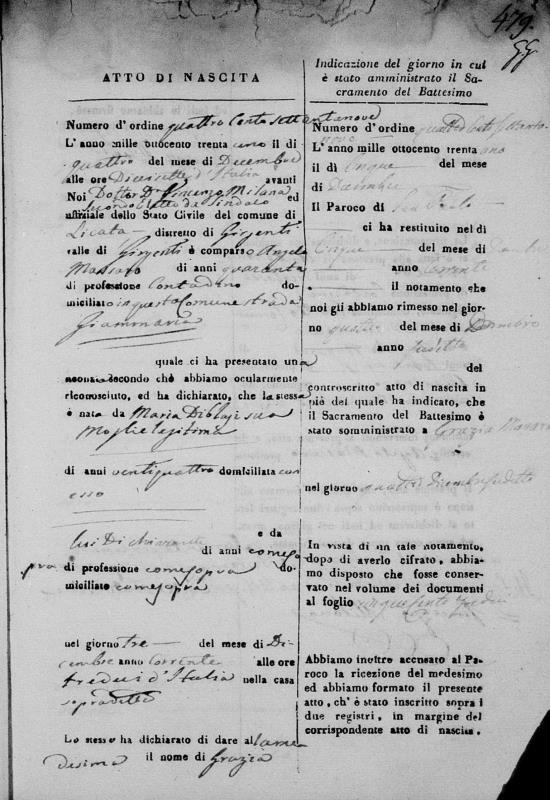 479.
ATTO DI NASCITA
Numero d'ordine quattro Cento settantanove
L'anno mille ottocento trenta uno il dì
quattro del mese di Decembre
alle ore Diecisette d'Italia avanti
Noi Dottor D. Vincenzo Milana
secondo Eletto da Sindaco ed
uffiziale dello Stato Civile del comune di
Licata distretto di Girgenti
valle di Girgenti è comparso Angelo
Massaro di anni quaranta
di professione Contadino do-
miciliato in questa Comune strada
Giammaria
quale ci ha presentato una
neonata secondo chè abbiamo ocularmente
riconosciuto, ed ha dichiarato, che la stessa
è nata da Maria Diblasi sua
Moglie legitima
di anni ventiquattro domiciliata con
esso
e da
lui Dichiarante
di anni come so
pra di professione come sopra do-
miciliato come sopra
nel giorno tre del mese di Di-
cembre anno Corrente alle ore
tredeci d'Italia nella casa
sopradetta
Lo stesso ha dichiarato di dare alla me
desima il nome di Grazia
Indicazione del giorno in cui
è stato amministrato il Sa-
cramento del Battesimo
Numero d'ordine quattro Cento settanta
nove
L'anno mille ottocento trenta uno
il dì Cinque del mese
di Decembre
Il Paroco di
ci ha restituito nel dì
Cinque del mese di
anno Corrente
il notamento che
noi gli abbiamo rimesso nel gior-
no quattro del mese di Decembre
anno sudetto
del
controscritto atto di nascita in
piè del quale ha indicato, che
il Sacramento del Battesimo è
stato somministrato a Grazia Massaro
nel giorno quattro Decembre sudetto
In vista di un tale notamento,
dopo di averlo cifrato, abbia-
mo disposto che fosse conser-
vato nel volume dei documenti
al foglio
Abbiamo inoltre accusato al Pa-
roco la ricezione del medesimo
ed abbiamo formato il presente
atto, ch' è stato inscritto sopra i
due registri, in margine del
corrispondente atto di nascita.